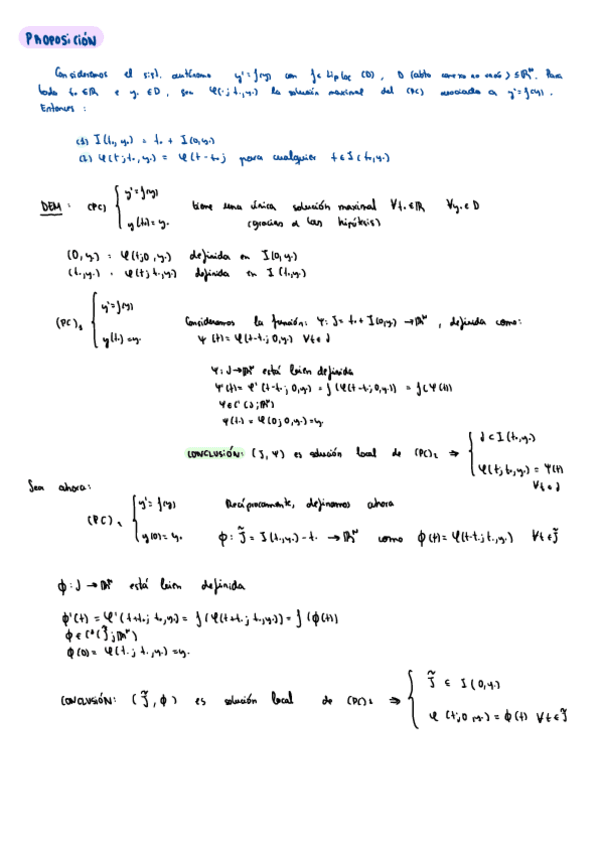 PROPOSICIÓN
Consideremos el sist. autónomo y'=f(y) con f ∈ Lip loc (D), D (abto conexo no vacío) ⊆ ℝᴺ. Para
todo t. ∈ℝ e y. ∈D, sea φ(·; t., y.) la solución maximal del (PC) asociada a y'=f(y).
Entonces:
(1) I(t., y.) = t. + I(0,y.)
(2) φ(t; t., y.) = φ(t-t.; para cualquier t ∈ I(t., y.)
DEM: (PC) { y'=f(y) tiene una única solución maximal ∀t. ∈ℝ ∀y. ∈ D
y(t.)=y. (gracias a las hipótesis)
(0, y.) : φ(t; 0, y.) definida en I(0, y.)
(t., y.) : φ(t; t., y.) definida en I(t., y.)
(PC)₂ { y'=f(y) Consideramos la función: Ψ: J= t. + I(0,y.) → ℝᴺ, definida como:
y(t.)=y. Ψ(t)= φ(t-t.; 0, y.) ∀t ∈ J
Ψ: J→ℝᴺ está bien definida
Ψ'(t)= φ'(t-t.; 0, y.) = f(φ(t-t.; 0, y.)) = f(Ψ(t))
Ψ∈C¹(J; ℝᴺ)
Ψ(t.) = φ(0; 0, y.)=y.
CONCLUSIÓN: (J, Ψ) es solución local de (PC)₂ ⇒ { J ⊂ I(t., y.)
φ(t; t., y.) = Ψ(t)
∀t ∈ J
Sea ahora:
(PC)₁ { y'=f(y) Recíprocamente, definamos ahora
y(0)=y. ϕ: J̃ = I(t., y.) - t. → ℝᴺ como ϕ(t)= φ(t+t.; t., y.) ∀t ∈ J̃
ϕ: J → ℝᴺ está bien definida
ϕ'(t) = φ'(t+t.; t., y.) = f(φ(t+t.; t., y.)) = f(ϕ(t))
ϕ ∈ C¹(J̃; ℝᴺ)
ϕ(0) = φ(t.; t., y.) =y.
CONCLUSIÓN: (J̃, ϕ) es solución local de (PC)₁ ⇒ { J̃ ⊂ I(0, y.)
φ(t; 0, y.) = ϕ(t) ∀t ∈ J̃